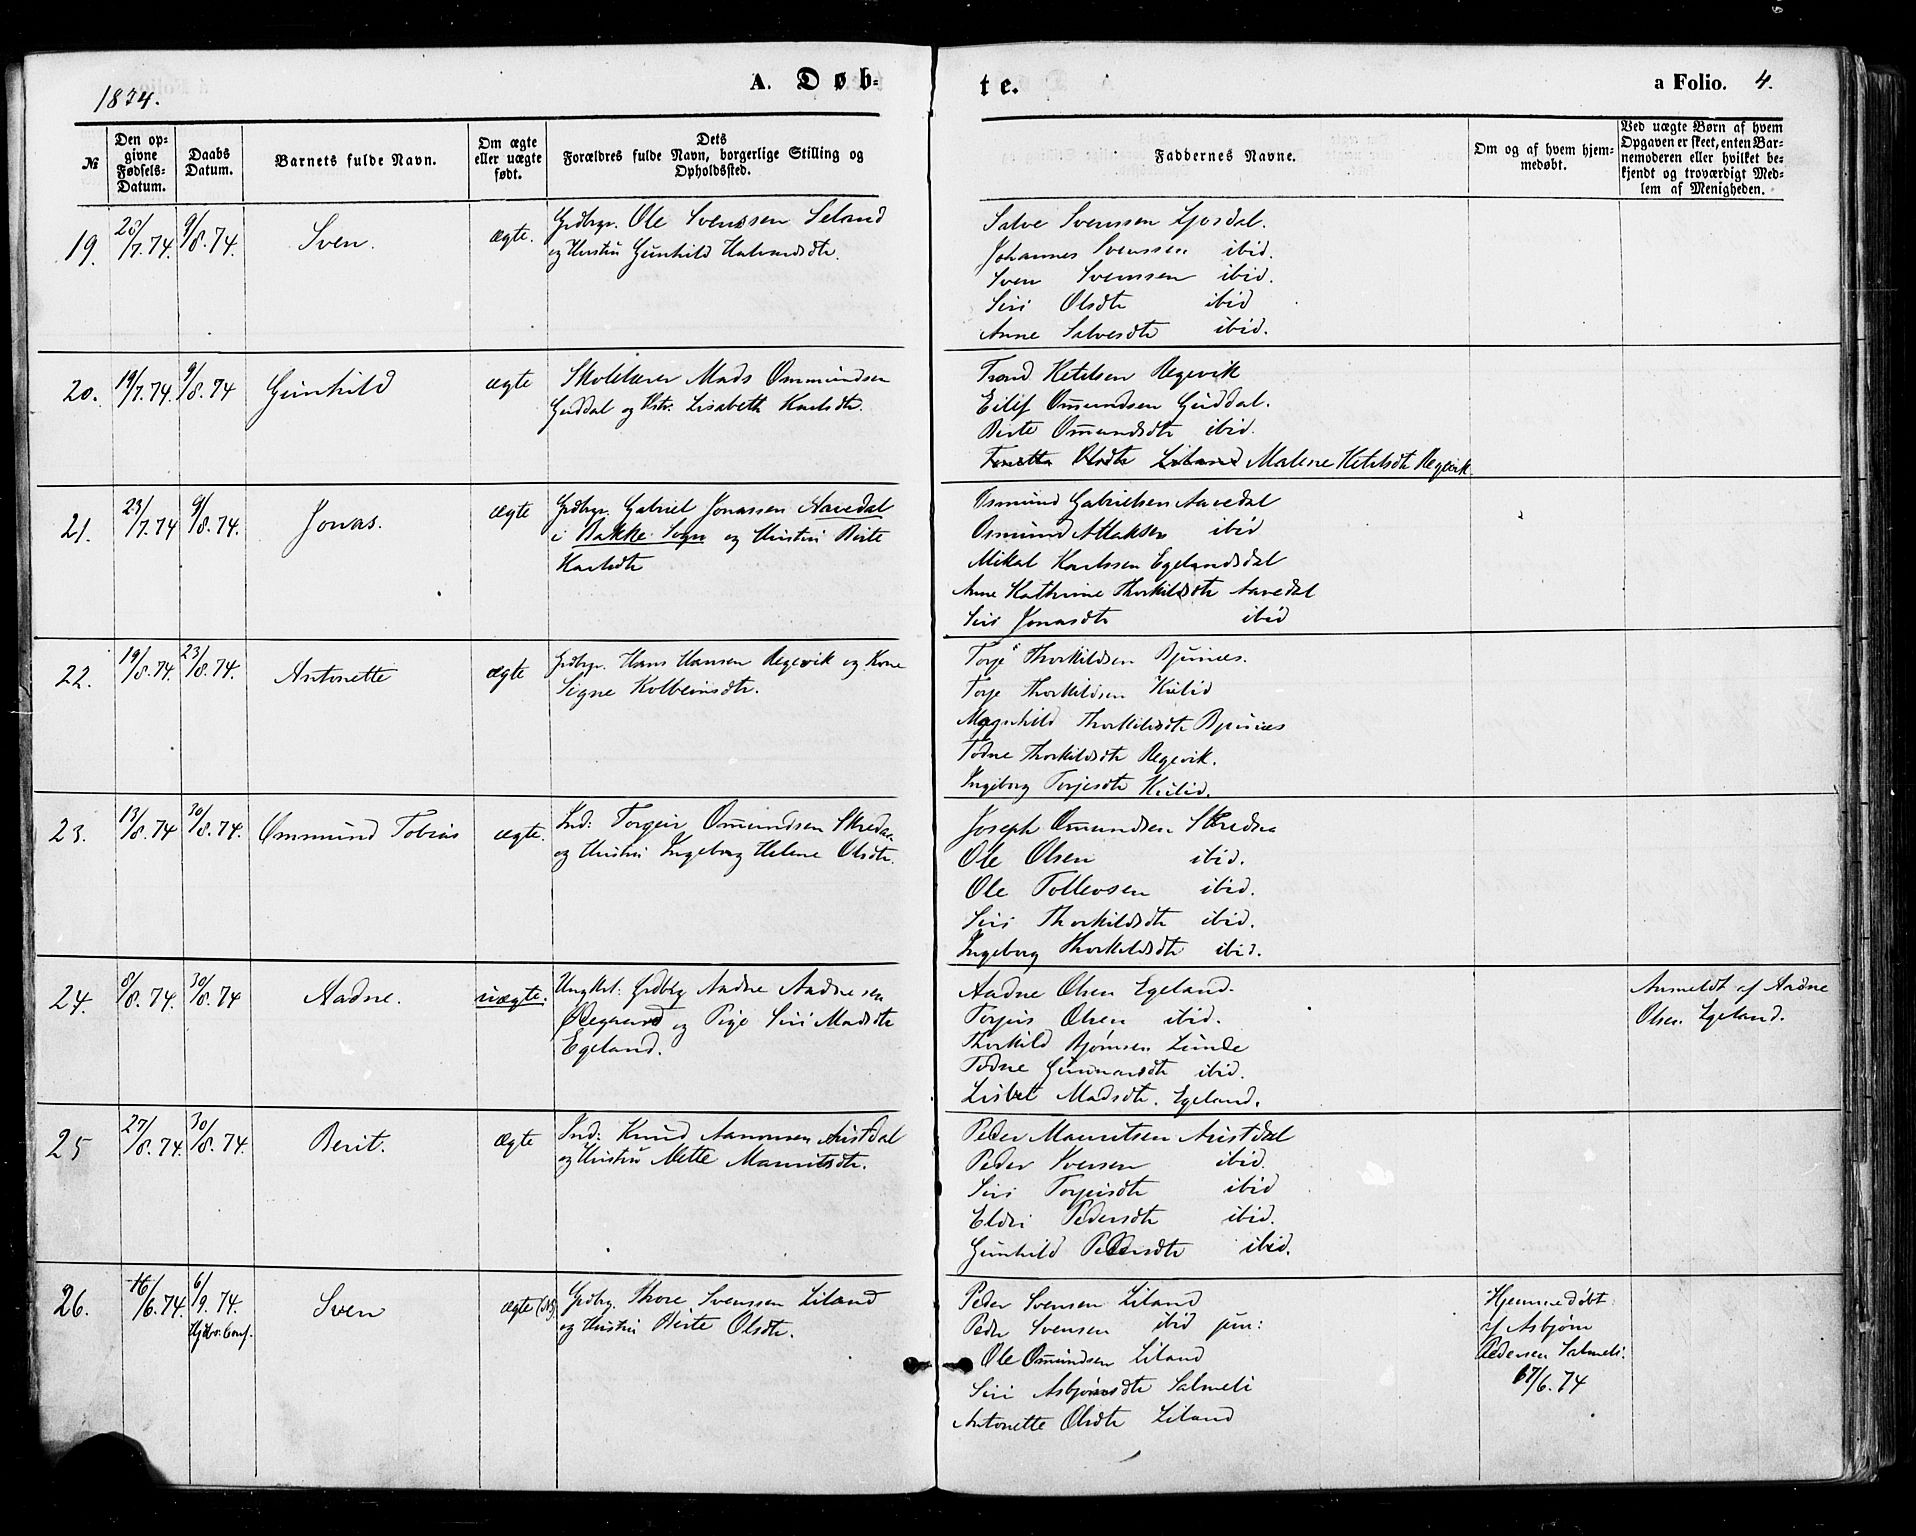 1874.
A. Døb-
te.
a Folio. 4.
№
Den op-
givne
Fødsels-
Datum.
Daabs
Datum.
Barnets fulde Navn.
Om ægte
eller uægte
født.
Dets
Forældres fulde Navn, borgerlige Stilling og
Opholdssted.
Faddernes Navne.
Om og af hvem hjem-
medøbt.
Ved uægte Børn af hvem
Opgaven er skeet, enten Bar-
nemoderen eller hvilket be-
kjendt og troværdigt Med-
lem af Menigheden.
19. 23/7.74. 9/8.74. Sven. ægte. Grdbgr. Ole Svenssen Seland
og Hustru Gunhild Halvardsdtr.
Salve Svenssen Ljosdal.
Johannes Svenssen ibid.
Sven Svenssen ibid.
Siri Olsdtr ibid
Anne Salvesdtr ibid.
20. 19/7.74. 9/8.74 Gunhild ægte Skolelærer Mads Ommundsen
Guddal og Hstr. Lisabeth Karlsdtr.
Trond Ketelsen Regevik
Eilif Omundsen Guddal.
Birte Omundsdtr ibid.
Tonette Olsdtr Liland Malene Ketelsdtr Regevik
21. 23/7.74 9/8.74. Jonas. ægte Grdbgr. Gabriel Jonassen Aavedal
i Bakke Sogn og Hustru Birte
Karlsdtr
Osmund Gabrielsen Aavedal
Osmund Atlaksen ibid
Mikal Karlssen Egelandsdal
Anne Kathrine Thorkildsdtr Aavedal
Siri Jonasdtr ibid
22. 19/8.74. 23/8.74. Antonette ægte Grdbgr. Hans Hansen Regevik og Kone
Signe Kolbeinsdtr.
Torje Thorkildsen Bjunes.
Torje Thorkildsen Kulid
Magnhild Thorkildsdtr Bjunes
Todne Thorkildsdtr Regevik.
Ingeborg Torjesdtr Kulid.
23. 13/8.74 30/8.74. Ommund Tobias ægte. Ind: Torgeir Omundsen Skredae
og Hustru Ingeborg Helene Olsdtr.
Joseph Omundsen Skredna
Ole Olsen ibid.
Ole Tollevsen ibid.
Siri Thorkildsdtr ibid.
Ingeborg Thorkildsdtr ibid.
24. 8/8.74. 30/8.74 Aadne. uægte. Ungkrl: Grdbrg Aadne Aadnesen
Ødegaard og Pige Siri Madsdtr
Egeland.
Aadne Olsen Egeland.
Torjus Olsen ibid.
Thorkild Bjørnsen Lunde
Todne Gunnarsdtr ibid.
Lisbet Madsdtr. Egeland.
Anmeldt af Aadne
Olsen Egeland.
25 27/8.74. 30/8.74. Berit. ægte Ind: Knud Aanonsen Austdal
og Hustru Mette Mauritsdtr.
Peder Mauritsen Austdal
Peder Iversen ibid.
Siri Torjusdtr ibid
Eldri Pedersdtr ibid.
Gunhild Pedersdtr ibid.
26. 16/6.74. 6/9.74. Sven ægte Grdbrg. Thore Svenssen Liland
og Hustru Birte Olsdtr.
Peder Svensen Liland
Peder Svensen ibid jun:
Ole Omundsen Liland
Siri Asbjørnsdtr Salmeli
Antonette Olsdtr Liland
Hjemmedøbt
af Asbjørn
Pedersen Salmeli.
17/6.74